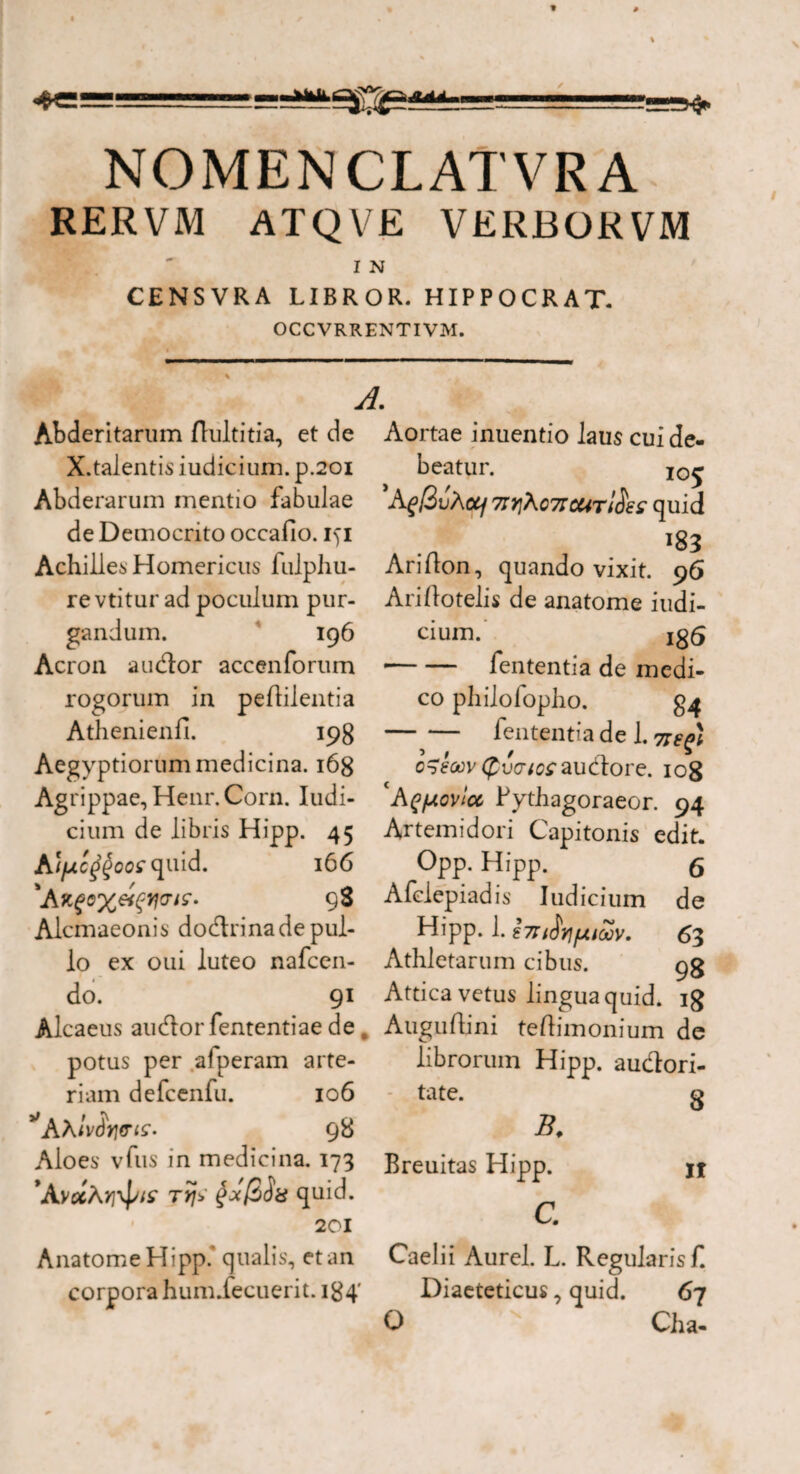 NOMENCLATVRA
RERVM ATQVE VERBORVM
IN
CENSVRA LIBROR. HIPPOCRAT.
OCCVRRENTIVM.
A.
Abderitarum ſtultitia, et de
X.talentis iudicium. p.201
Abderarum mentio fabulae
de Democrito occaſio. 151
Achilles Homericus ſulphu-
re vtitur ad poculum pur-
gandum. 196
Acron auctor accenſorum
rogorum in peſtilentia
Athenienſi. 198
Aegyptiorum medicina. 168
Agrippae, Henr. Corn. Iudi-
cium de libris Hipp. 45
Αἱμόῤῥοος quid. 166
Ἀκροχείρησις. 98
Alcmaeonis doctrina de pul-
lo ex oui luteo naſcen-
do. 91
Alcaeus auctor ſententiae de
potus per aſperam arte-
riam deſcenſu. 106
Ἀλίνδησις. 98
Aloes vſus in medicina. 173
Ἀνάληψις τῆς ῥάβδȣ quid.
201
Anatome Hipp. qualis, et an
corpora hum.ſecuerit. 184
Aortae inuentio laus cui de-
beatur. 105
Ἀρβύλαι πηλοπατίδες quid
183
Ariſton, quando vixit. 96
Ariſtotelis de anatome iudi-
cium. 186
—— ſententia de medi-
co philoſopho. 84
—— ſententia de l. περὶ
ὀϛέων φύσιος auctore. 108
Ἁρμονία Pythagoraeor. 94
Artemidori Capitonis edit.
Opp. Hipp. 6
Aſclepiadis Iudicium de
Hipp. l. ἐπιδημιῶν. 63
Athletarum cibus. 98
Attica vetus lingua quid. 18
Auguſtini teſtimonium de
librorum Hipp. auctori-
tate. 8
B.
Breuitas Hipp. 11
C.
Caelii Aurel. L. Regularis ſ.
Diaeteticus, quid. 67
O Cha-